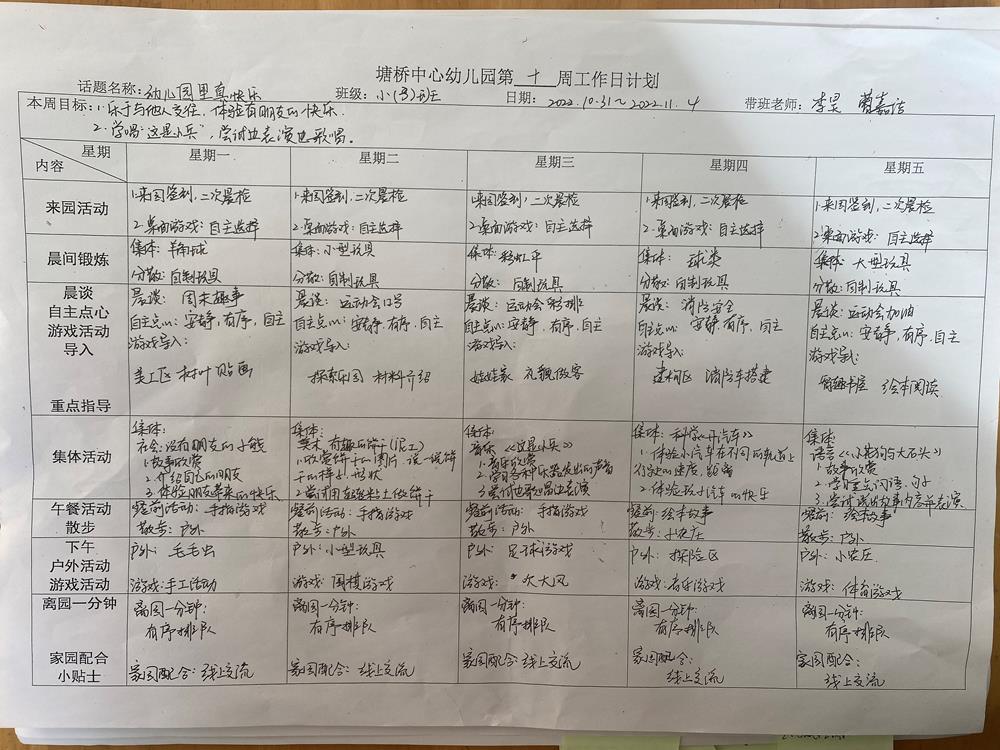 塘桥中心幼儿园第 十 周工作日计划
话题名称：幼儿园里真快乐 班级：小(3)班 日期：2022.10.31～2022.11.4 带班老师：李昊
本周目标：1.乐于与他人交往，体验有朋友的快乐.
2.学唱"这是小兵"，尝试边表演边歌唱。
星期 内容 星期一 星期二 星期三 星期四 星期五
来园活动
1.来园签到，二次晨检 1.来园签到，二次晨检 1.来园签到，二次晨检 1.来园签到，二次晨检 1.来园签到，二次晨检
2.桌面游戏：自主选择 2.桌面游戏：自主选择 2.桌面游戏：自主选择 2.桌面游戏：自主选择 2.桌面游戏：自主选择
晨间锻炼
集体：羊角球 集体：小型玩具 集体：彩虹伞 集体：球类 集体：大型玩具
分散：自制玩具 分散：自制玩具 分散：自制玩具 分散：自制玩具 分散：自制玩具
晨谈
自主点心
游戏活动
导入
重点指导
晨谈：周末趣事 晨谈：运动会口号 晨谈：运动会彩排 晨谈：消防安全 晨谈：运动会加油
自主点心：安静，有序，自主 自主点心：安静，有序，自主 自主点心：安静，有序，自主 自主点心：安静，有序，自主 自主点心：安静，有序，自主
游戏导入： 游戏导入： 游戏导入： 游戏导入： 游戏导入：
美工区 树叶贴画 探索乐园 材料介绍 娃娃家 礼貌做客 建构区 消防车搭建 绘本阅读
集体活动
集体：
社会：没有朋友的小钱
1.故事欣赏
2.介绍自己的朋友
3.体验朋友带来的快乐
集体：
美术 有趣的饼干(泥工)
1.欣赏饼干的图片，说一说饼
干的样小、形状
2.尝试用轻粘土做饼干
集体：
音乐《这是小兵》
1.音乐欣赏
2.学习各种乐器发出的声音
3.尝试边歌唱边表演
集体：科学《开汽车》
1.体验小汽车在不同的轨道上
行驶的速度，距离
2.体验玩小汽车的快乐
集体：
语言《小黑狗与大石头》
1.故事欣赏
2.学习重点词语、句子
3.尝试说出故事内容并表演
午餐活动
散步
餐前活动：手指游戏 餐前活动：手指游戏 餐前活动：手指游戏 餐前：绘本故事 餐前：绘本故事
散步：户外 散步：户外 散步：户外 散步：小农庄 散步：户外
下午
户外活动
游戏活动
户外：毛毛虫 户外：小型玩具 户外：足球游戏 户外：探险区 户外：小农庄
游戏：手工活动 游戏：围棋游戏 游戏：吹大风 游戏：音乐游戏 游戏：体育游戏
离园一分钟
家园配合
小贴士
离园一分钟： 离园一分钟： 离园一分钟： 离园一分钟： 离园一分钟：
有序排队 有序排队 有序排队 有序排队 有序排队
家园配合：线上交流 家园配合：线上交流 家园配合：线上交流 家园配合：线上交流 家园配合：线上交流